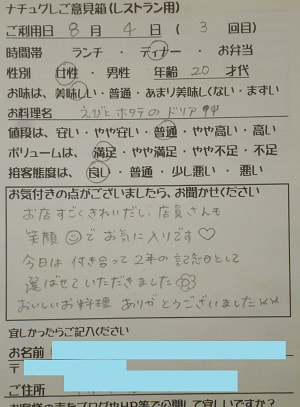 ナチュグしご意見箱(レストラン用)
ご利用日 8 月 4 日 ( 3 回目)
時間帯 ランチ ・ ディナー ・ お弁当
性別 女性 ・ 男性 年齢 20 才代
お味は、美味しい・普通・あまり美味しくない・まずい
お料理名 えびとホタテのドリア
値段は、安い・やや安い・普通・やや高い・高い
ボリュームは、満足・やや満足・普通・やや不足・不足
接客態度は、良い・普通・少し悪い・悪い
お気付きの点がございましたら、お聞かせください
お店すごくきれいだし、店員さんも
笑顔でお気に入りです♡
今日は付き合って2年の記念日として
選ばせていただきました
おいしいお料理ありがとうございましたww
宜しかったらご記入ください
お名前
〒
ご住所
お客様の声をブログやHP等で公開して宜しいですか?